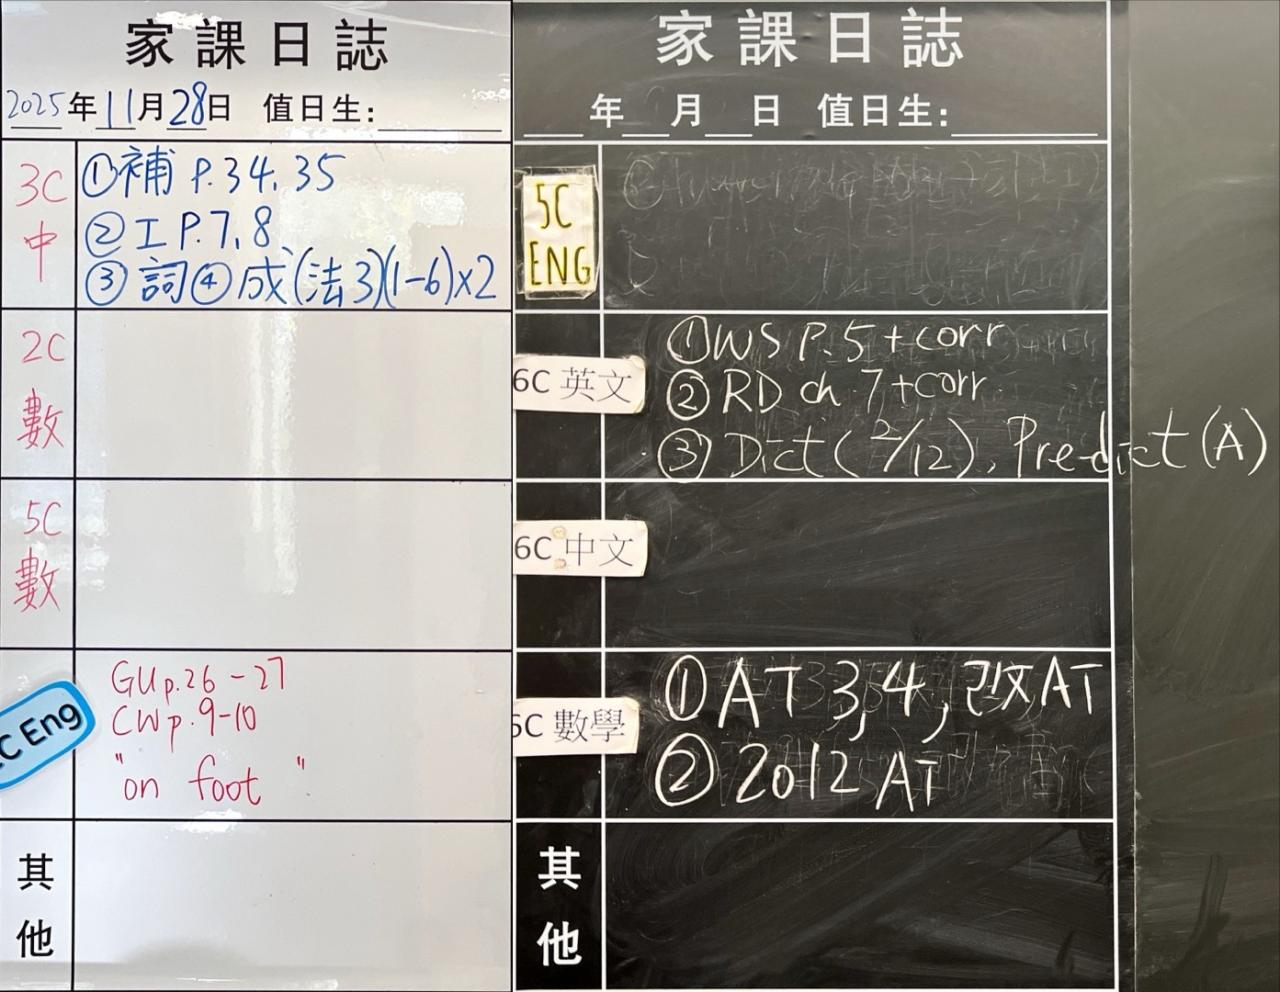 家課日誌
2025年11月28日 值日生:
3C 中
①補 P.34,35
②工 P.7,8
③詞④成(法3)(1-6)x2
2C 數
5C 數
C Eng
GU p.26-27
CW p.9-10
"on foot"
其他
家課日誌
年 月 日 值日生:
5C ENG
6C 英文
①WS P.5 + corr
②RD ch.7 + corr
③Dict (2/12), Pre-dict (A)
6C 中文
6C 數學
①AT 3,4,改AT
②2012 AT
其他